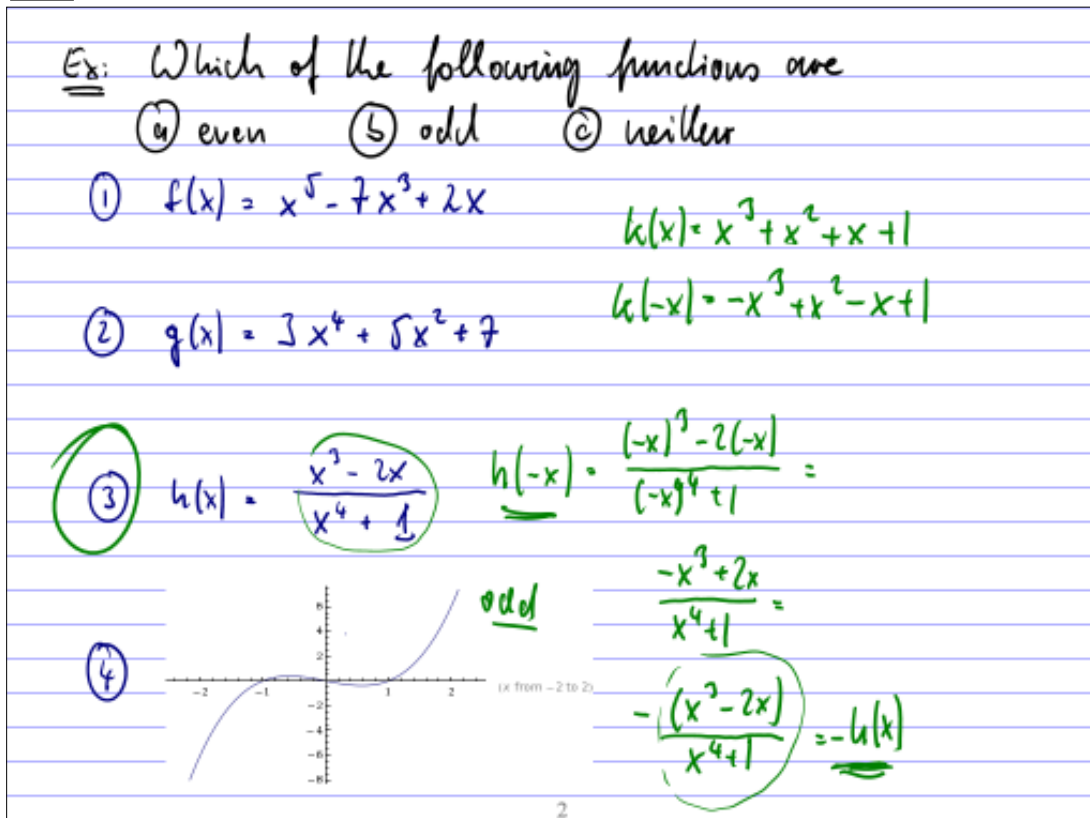 Ex: Which of the following functions are
ⓐ even ⓑ odd ⓒ neither
① f(x) = x⁵ - 7x³ + 2x
k(x) = x³ + x² + x + 1
k(-x) = -x³ + x² - x + 1
② g(x) = 3x⁴ + 5x² + 7
③ h(x) = (x³ - 2x)/(x⁴ + 1) h(-x) = ((-x)³ - 2(-x))/((-x)⁴ + 1) =
(-x³ + 2x)/(x⁴ + 1) =
-(x³ - 2x)/(x⁴ + 1) = -h(x)
④
odd
6
4
2
-2 -1 1 2
(x from -2 to 2)
-2
-4
-6
-8
2